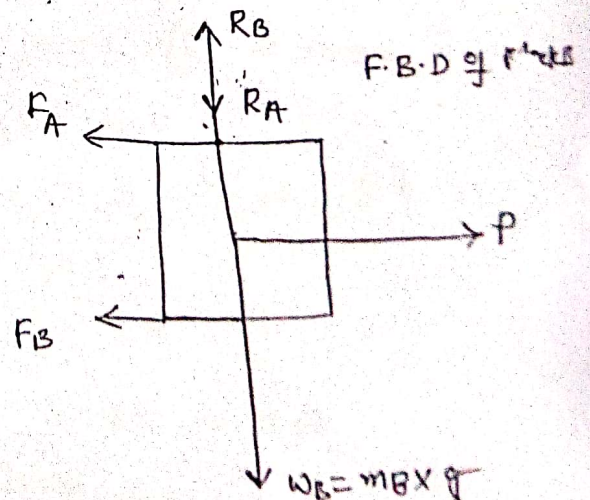 R_B
F.B.D of
R_A
F_A
P
F_B
W_B = m_B × g